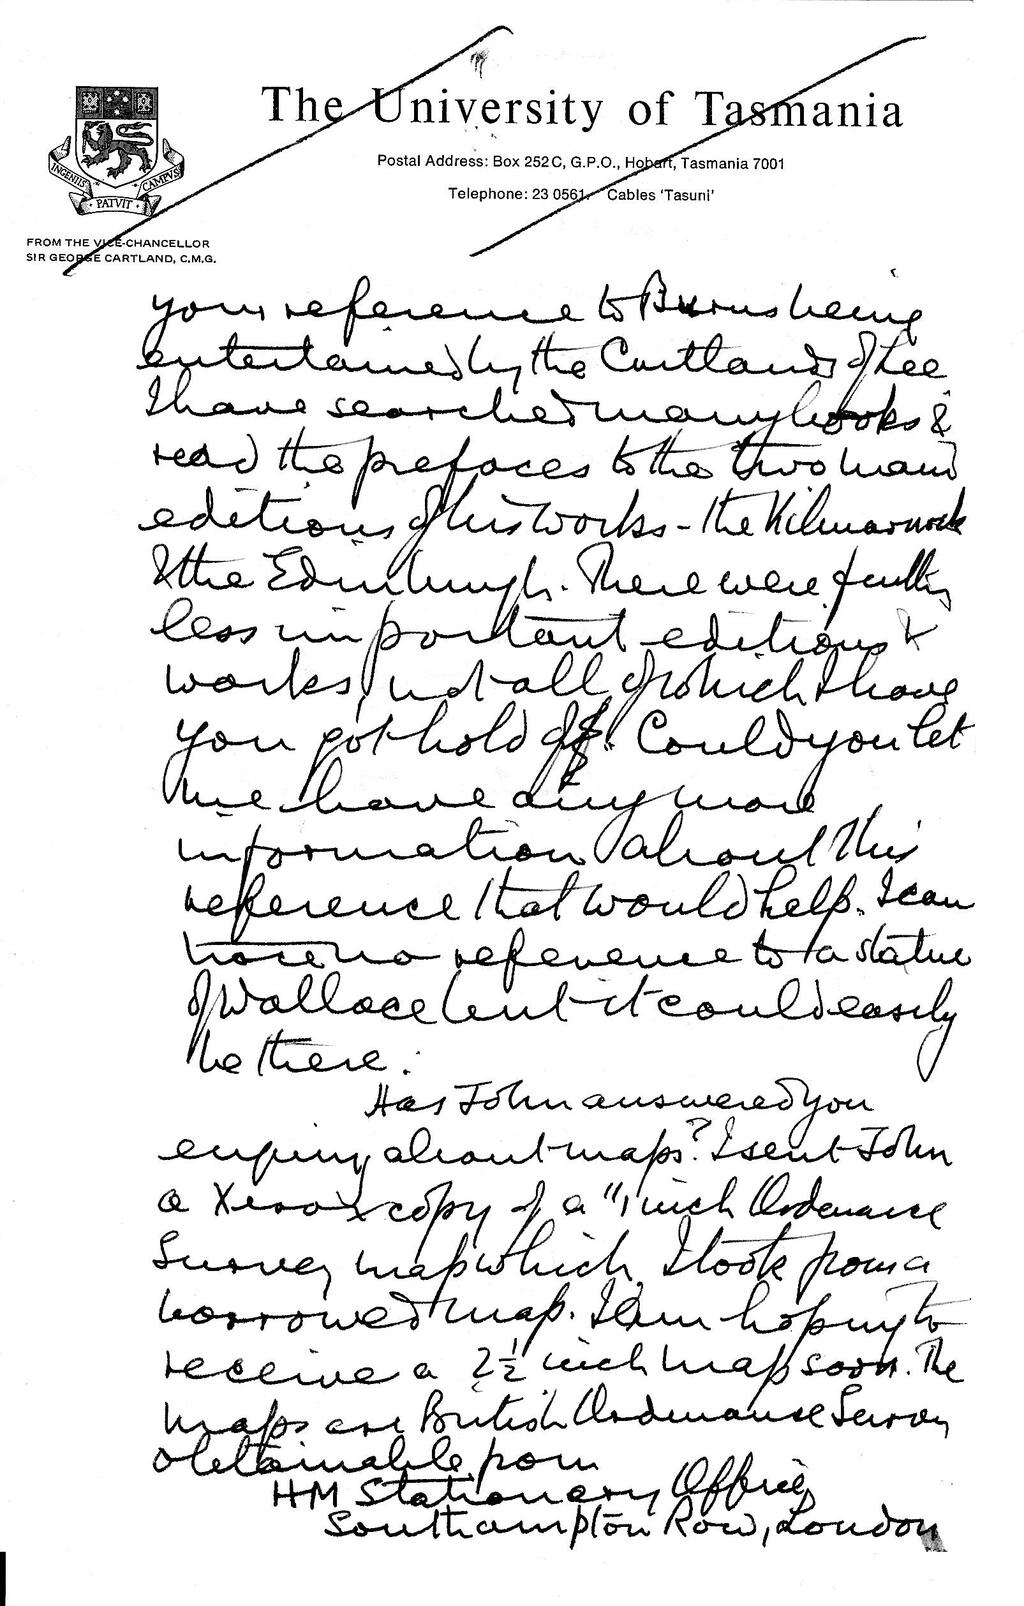 The University of Tasmania
Postal Address: Box 252C, G.P.O., Hobart, Tasmania 7001
Telephone: 23 0561. Cables 'Tasuni'
INGENIIS PATVIT CAMPVS
FROM THE VICE-CHANCELLOR
SIR GEORGE CARTLAND, C.M.G.
your reference to Burns being
entertained by the Cartlands of Lee
I have searched many books &
read the prefaces to the two main
editions of his works - the Kilmarnock
& the Edinburgh. There were further
less important editions &
works, not all of which I have
you got hold of. Could you let
me have any more
information about this
reference that would help. I can
trace no reference to a statue
of Wallace but it could easily
be there.
Has John answered you
enquiry about maps? I sent John
a Xerox copy of a "1 inch Ordenance
Survey map which I took from a
borrowed map. I am hoping to
receive a 2½ inch map soon. The
maps are British Ordenance Survey
obtainable from
HM Stationery Office,
Southampton Row, London